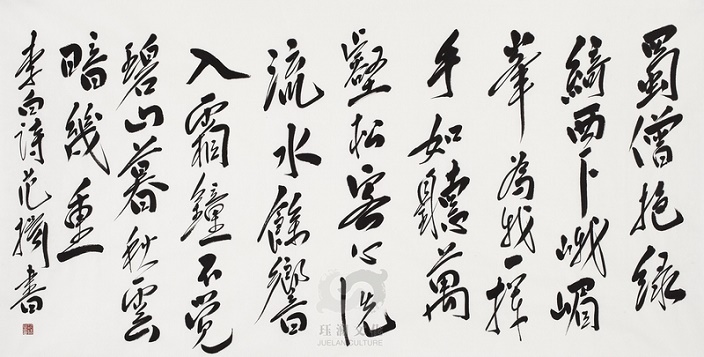 蜀僧抱綠
綺西下峨嵋
峯為我一揮
手如聽萬
壑松客心洗
流水餘響
入霜鐘不覺
碧山暮秋雲
暗幾重
李白詩范書
JUELAN CULTURE